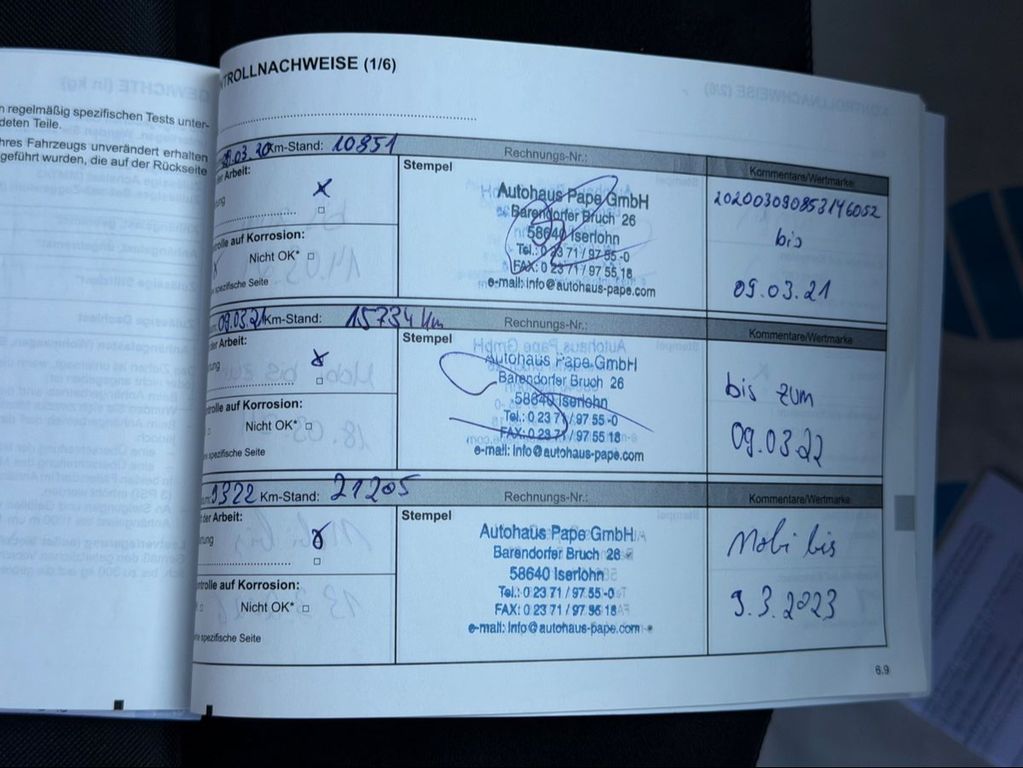 TROLLNACHWEISE (1/6)
n regelmäßig spezifischen Tests unter-
deten Teile.
hres Fahrzeugs unverändert erhalten
geführt wurden, die auf der Rückseite
.03.20 Km-Stand: 10851 Rechnungs-Nr.: Kommentare/Wertmarke
der Arbeit:
ung
Stempel
Autohaus Pape GmbH
Barendorfer Bruch 26
58640 Iserlohn
Tel.: 0 23 71 / 97 55 -0
FAX: 0 23 71 / 97 55 18
e-mail: info@autohaus-pape.com
202003090853146052
bis
09.03.21
trolle auf Korrosion:
Nicht OK*
e spezifische Seite
09.03.21 Km-Stand: 15734 km Rechnungs-Nr.: Kommentare/Wertmarke
der Arbeit:
ung
Stempel
Autohaus Pape GmbH
Barendorfer Bruch 26
58640 Iserlohn
Tel.: 0 23 71 / 97 55 -0
FAX: 0 23 71 / 97 55 18
e-mail: info@autohaus-pape.com
bis zum
09.03.22
ntrolle auf Korrosion:
Nicht OK*
e spezifische Seite
9322 Km-Stand: 21205 Rechnungs-Nr.: Kommentare/Wertmarke
der Arbeit:
ung
Stempel
Autohaus Pape GmbH
Barendorfer Bruch 26
58640 Iserlohn
Tel.: 0 23 71 / 97 55 -0
FAX: 0 23 71 / 97 55 18
e-mail: info@autohaus-pape.com
Mobi bis
9.3.2023
ntrolle auf Korrosion:
Nicht OK*
ne spezifische Seite
6.9